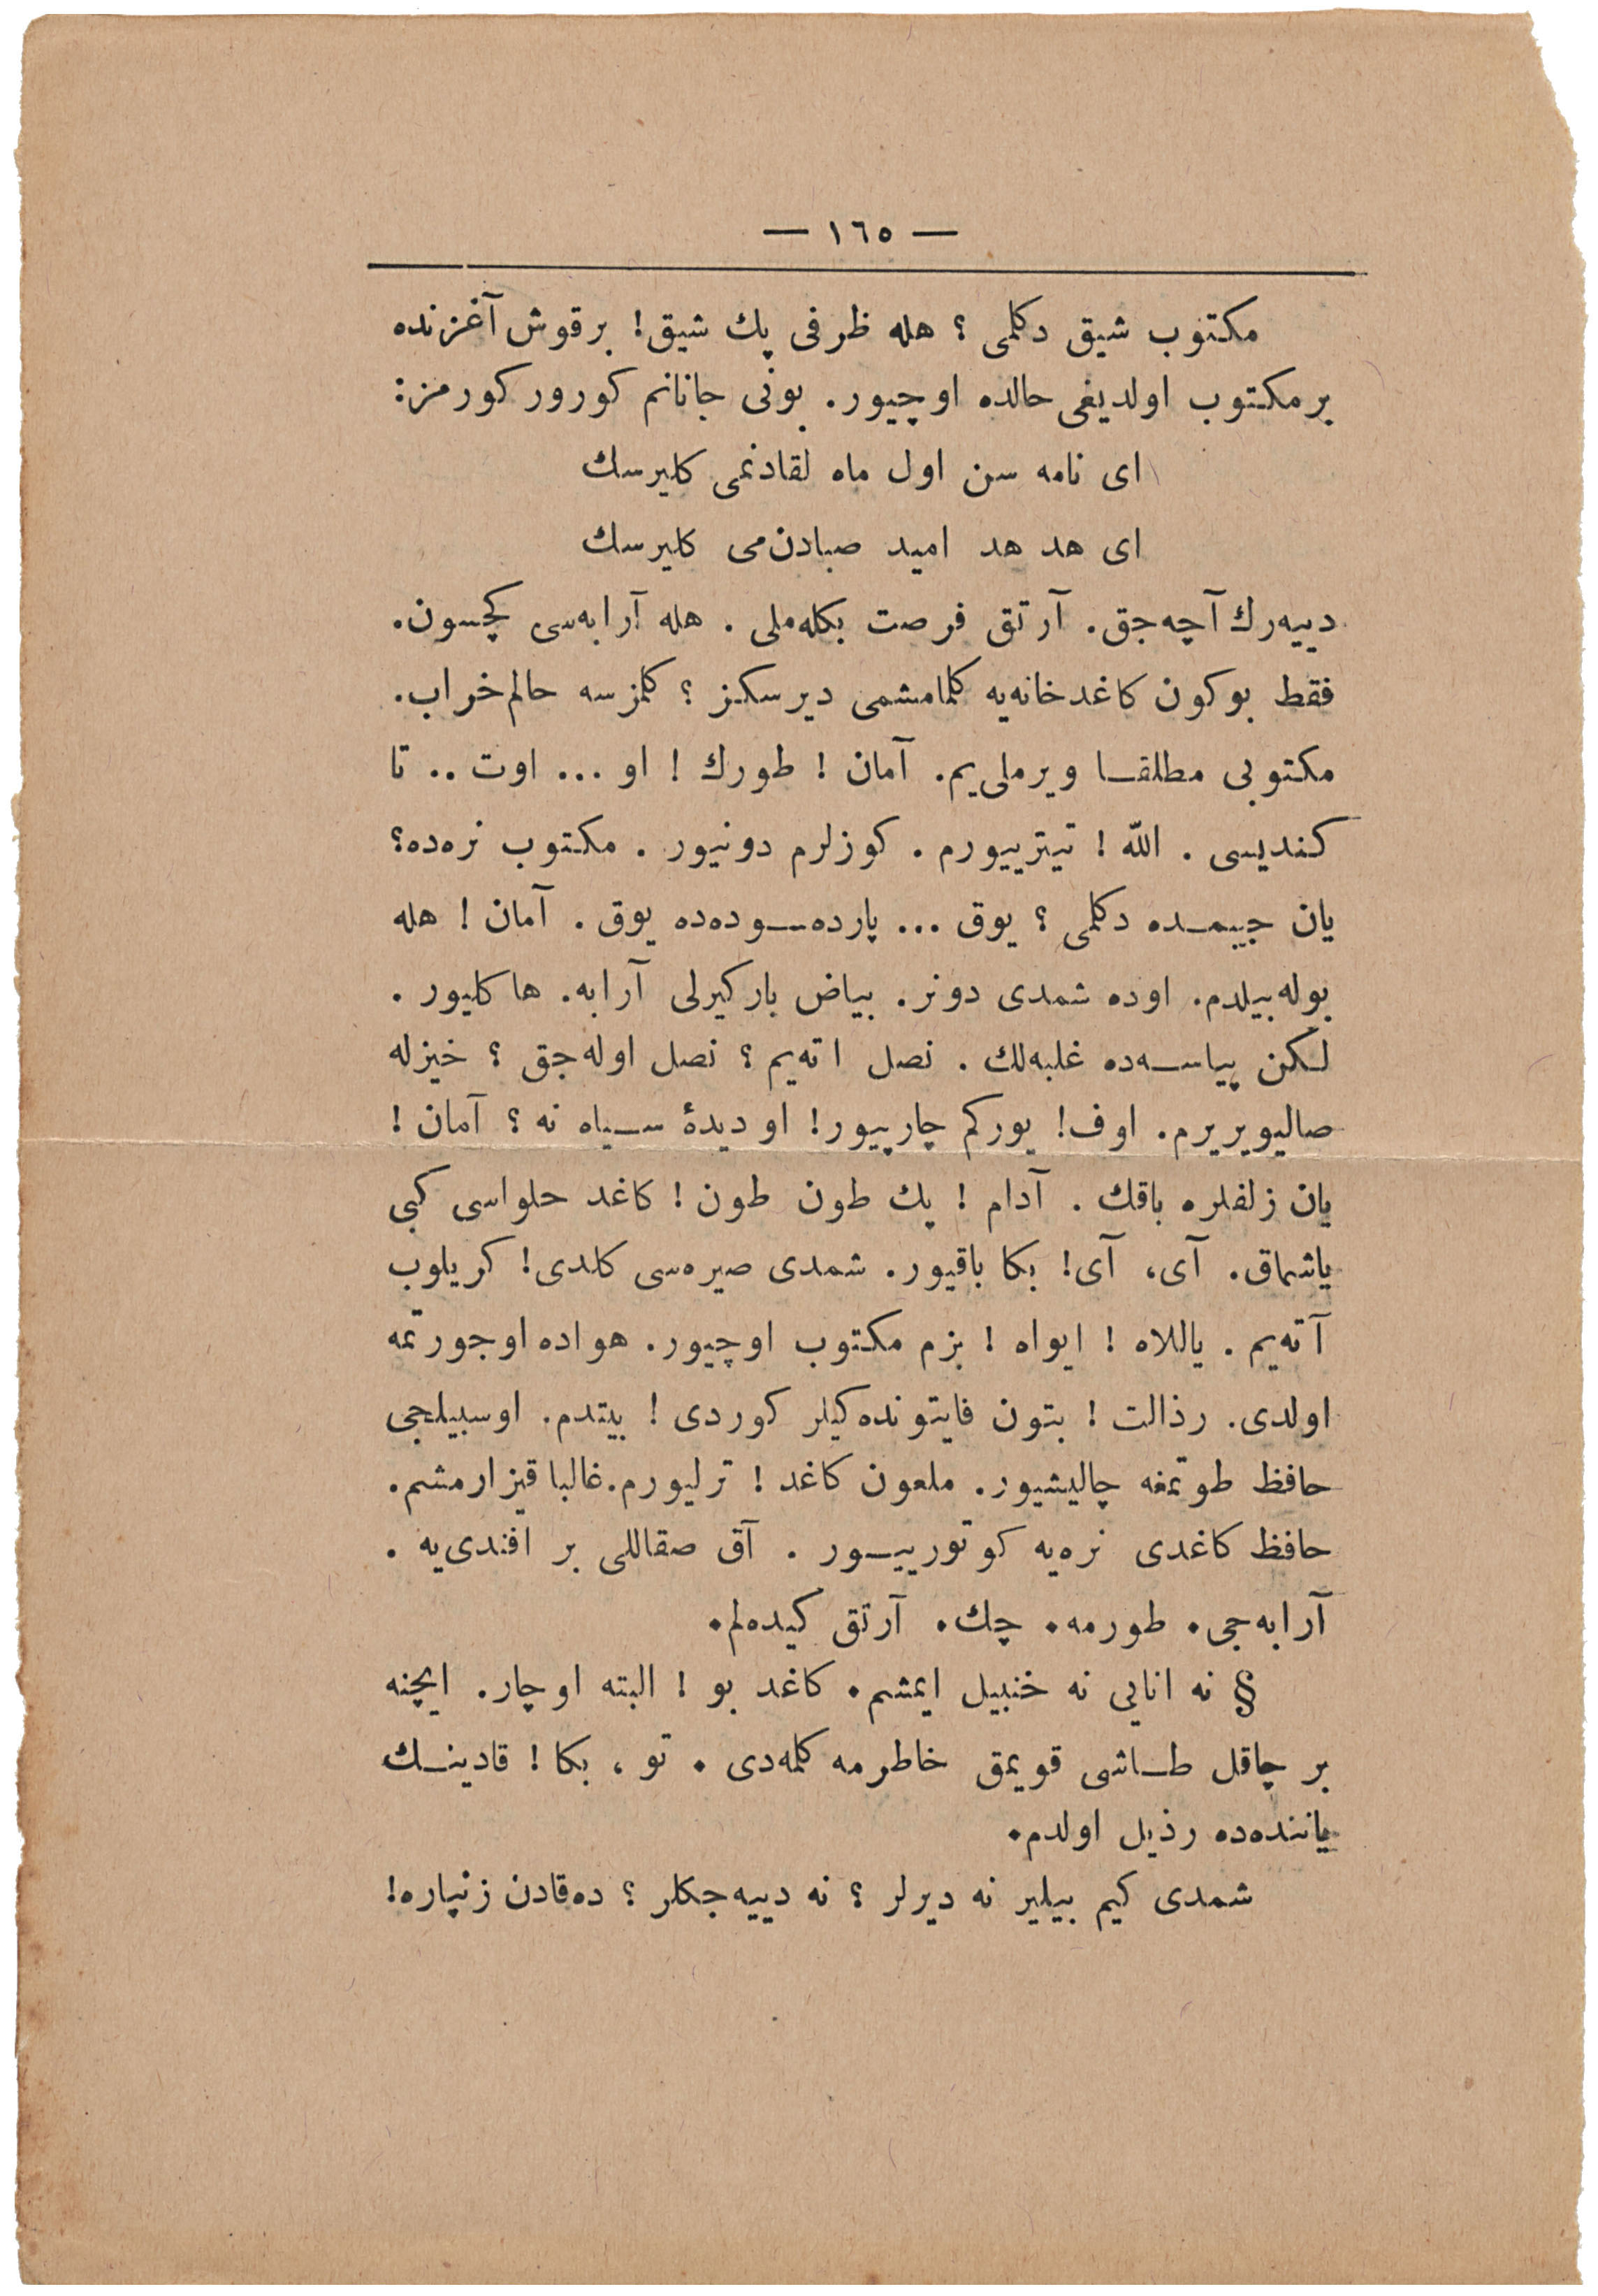 — ١٦٥ —
مكتوب شيق دكلمى ؟ هله ظرفى پك شيق! برقوش آغزنده
برمكتوب اولديغى حالده اوچيور. بونى جانانم كورور كورمز:
اى نامه سن اول ماه لقادنمى كليرسك
اى هد هد اميد صبادن‌مى كليرسك
دييه‌رك آچه‌جق. آرتق فرصت بكله‌ملى . هله آرابه‌سى كچسون.
فقط بوكون كاغدخانه‌يه كلمامشمى ديرسكز ؟ كلمزسه حالم خراب.
مكتوبى مطلقا ويرملى‌يم. آمان ! طورك ! او ... اوت .. تا
كنديسى . الله ! تيتريیورم . كوزلرم دونيور . مكتوب نره‌ده؟
يان جيبمده دكلمى ؟ يوق ... پارده‌سوده‌ده يوق . آمان ! هله
بوله‌بيلدم. اوده شمدى دونر. بياض باركيرلى آرابه. ها كليور .
لكن پياسه‌ده غلبه‌لك . نصل اته‌يم ؟ نصل اوله‌جق ؟ خيزله
صاليويريرم. اوف! يوركم چارپيور! او ديدۀ سياه نه ؟ آمان !
يان زلفلره باقك . آدام ! پك طون طون ! كاغد حلواسى كبى
ياشماق. آى، آى! بكا باقيور. شمدى صيره‌سى كلدى! كريلوب
آته‌يم . ياللاه ! ايواه ! بزم مكتوب اوچيور. هواده اوجورتمه
اولدى. رذالت ! بتون فايتونده‌كيلر كوردى ! بيتدم. اوسبيلجى
حافظ طوتمغه چاليشيور. ملعون كاغد ! ترليورم. غالبا قيزارمشم.
حافظ كاغدى نره‌يه كوتوريیور . آق صقاللى بر افندى‌يه .
آرابه‌جى. طورمه. چك. آرتق كيده‌لم.
§ نه انايى نه خنبيل ايمشم. كاغد بو ! البته اوچار. ايچنه
بر چاقل طاشى قويمق خاطرمه كلمه‌دى . تو ، بكا ! قادينك
ياننده‌ده رذيل اولدم.
شمدى كيم بيلير نه ديرلر ؟ نه دييه‌جكلر ؟ ده‌قادن زنپاره!